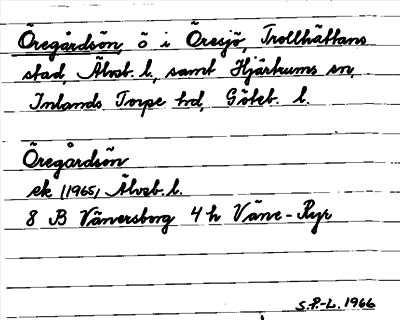 Öregårdsön, ö i Öresjö, Trollhättans
stad, Älvsb. l., samt Hjärtums sn,
Inlands Torpe hd, Göteb. l.
Öregårdsön
ek (1965) Älvsb. l.
8 B Vänersborg 4 h Väne-Ryr
S.P.-L. 1966